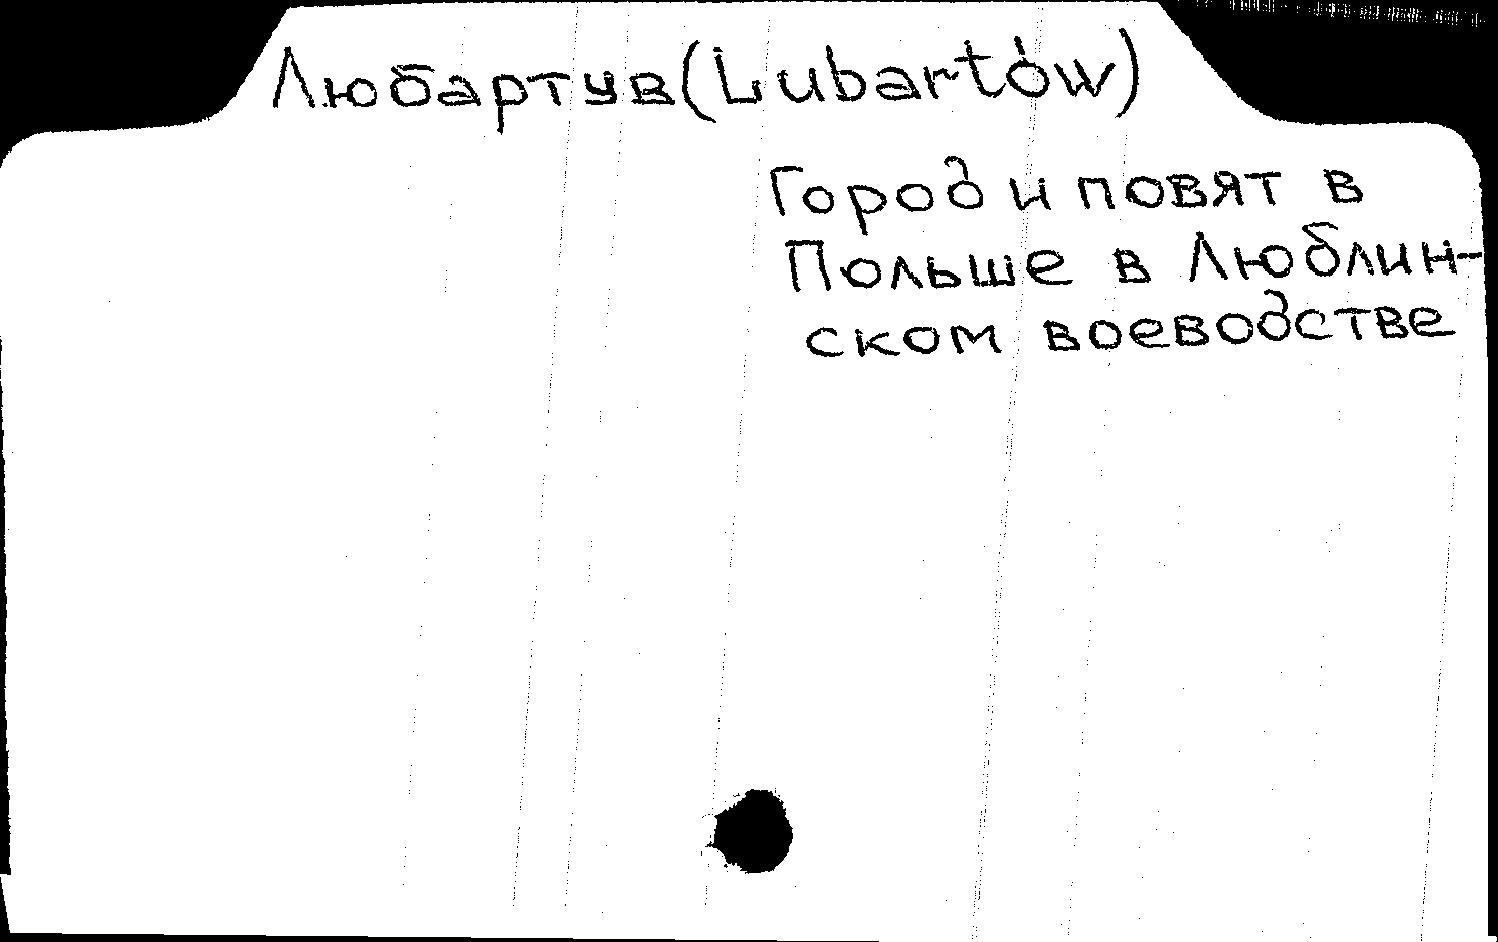 Любартув (Lubartów)
Город и повят в
Польше в Люблин-
ском воеводстве